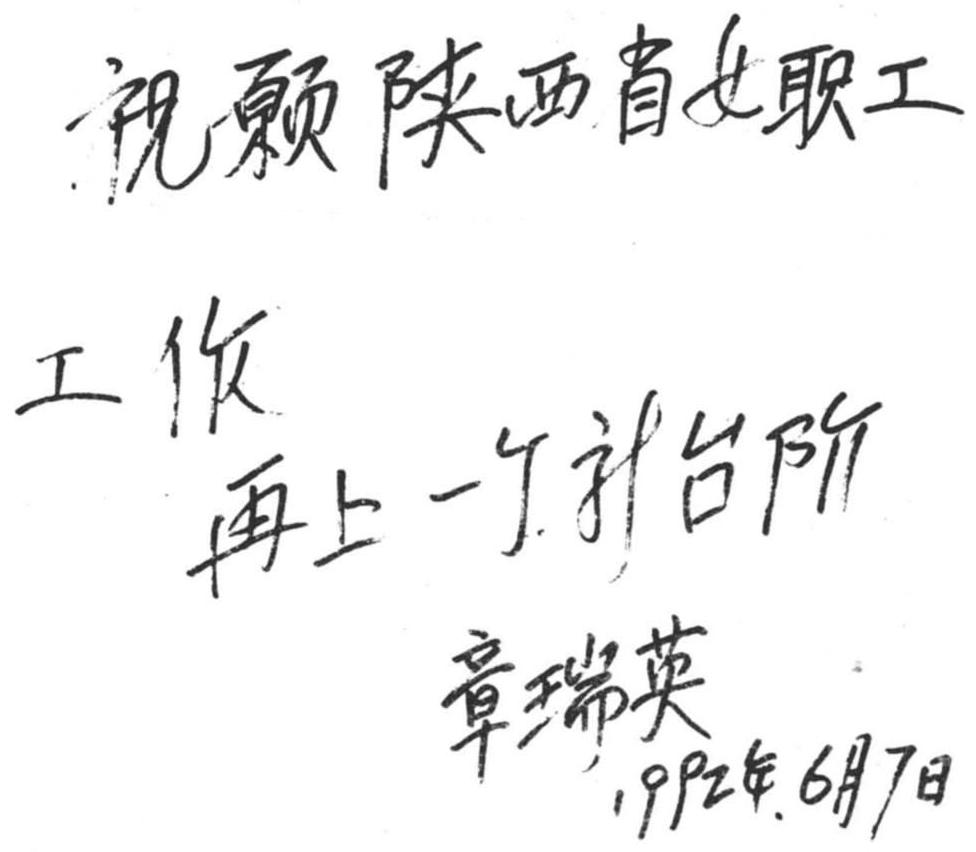 祝愿陕西省女职工
工作
再上一个新台阶
章瑞英
1992年.6月7日